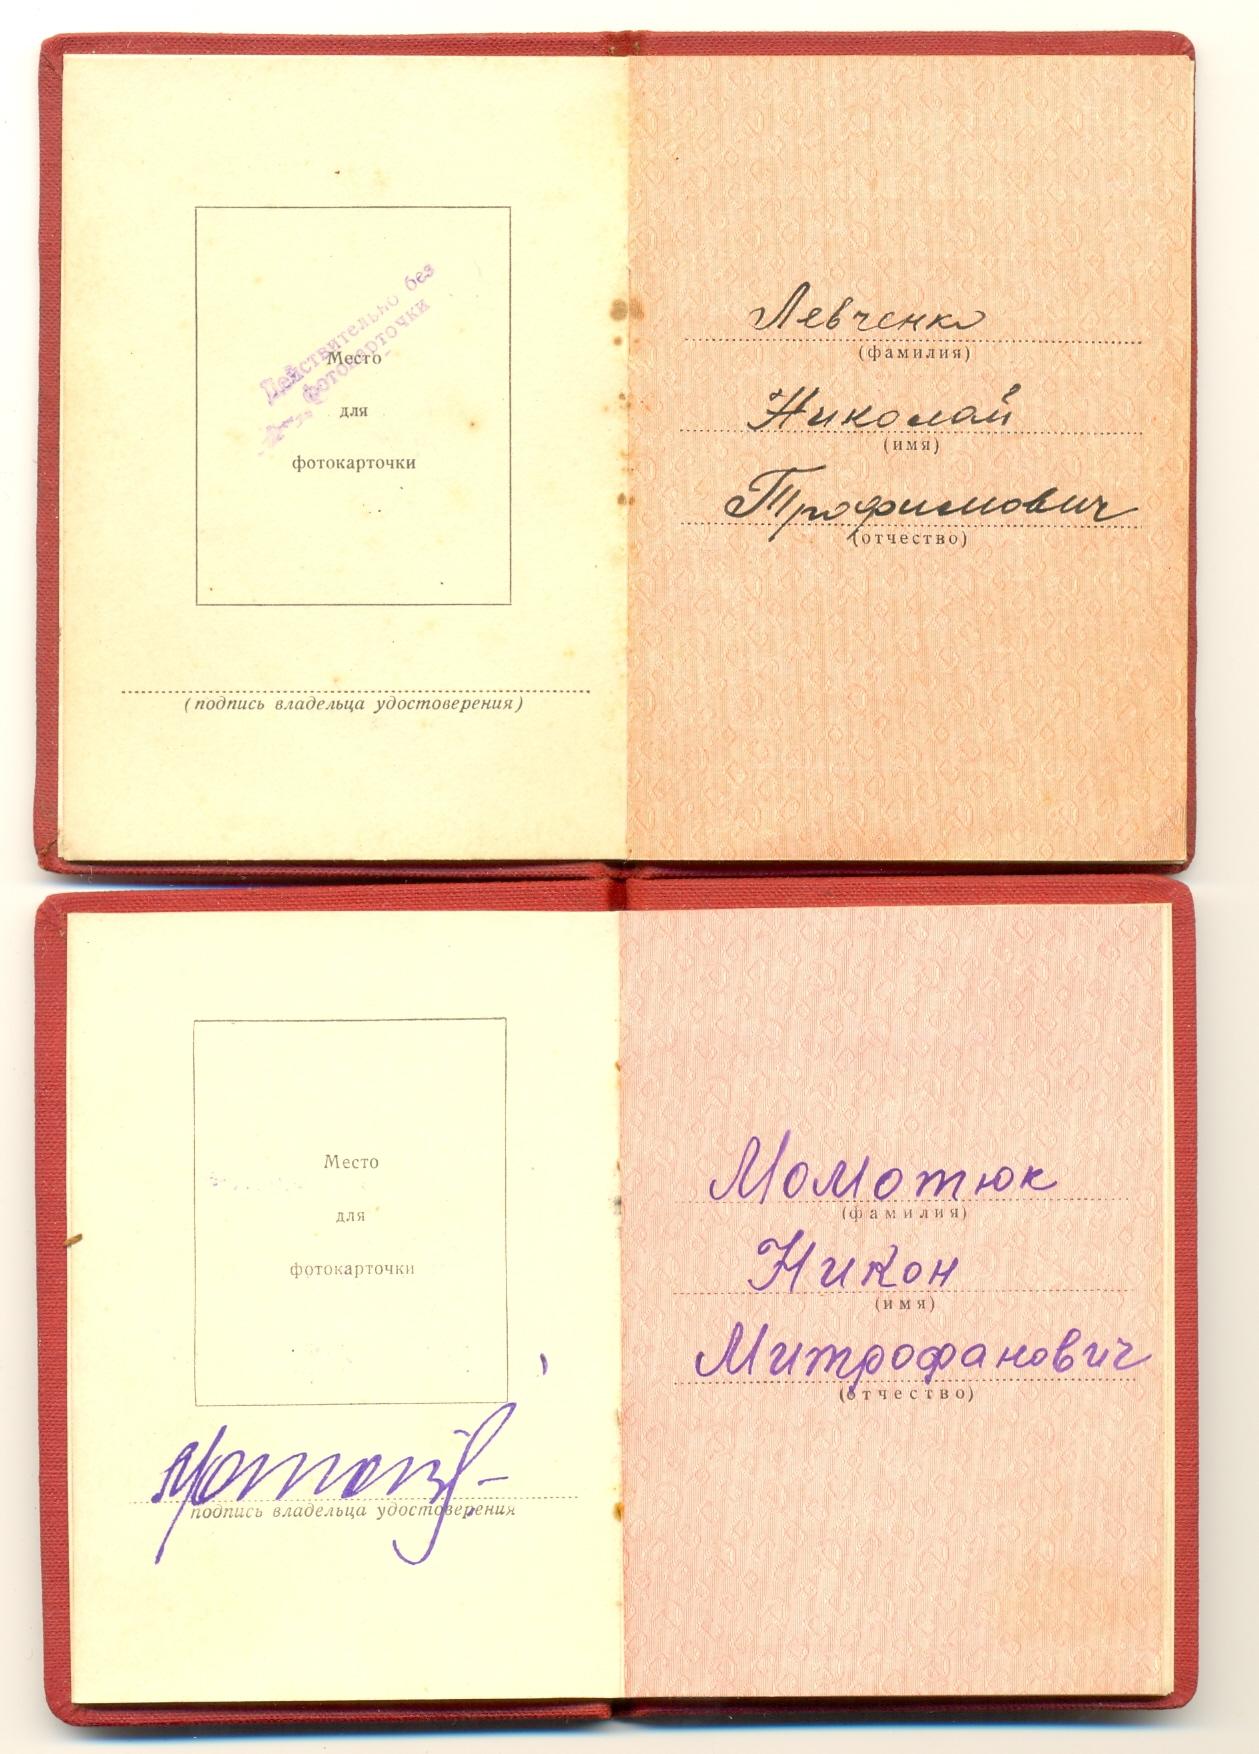 Действительно без
фотокарточки
Место
для
фотокарточки
(подпись владельца удостоверения)
Левченко
(фамилия)
Николай
(имя)
Трофимович
(отчество)
Место
для
фотокарточки
подпись владельца удостоверения
Момотюк
(фамилия)
Никон
(имя)
Митрофанович
(отчество)